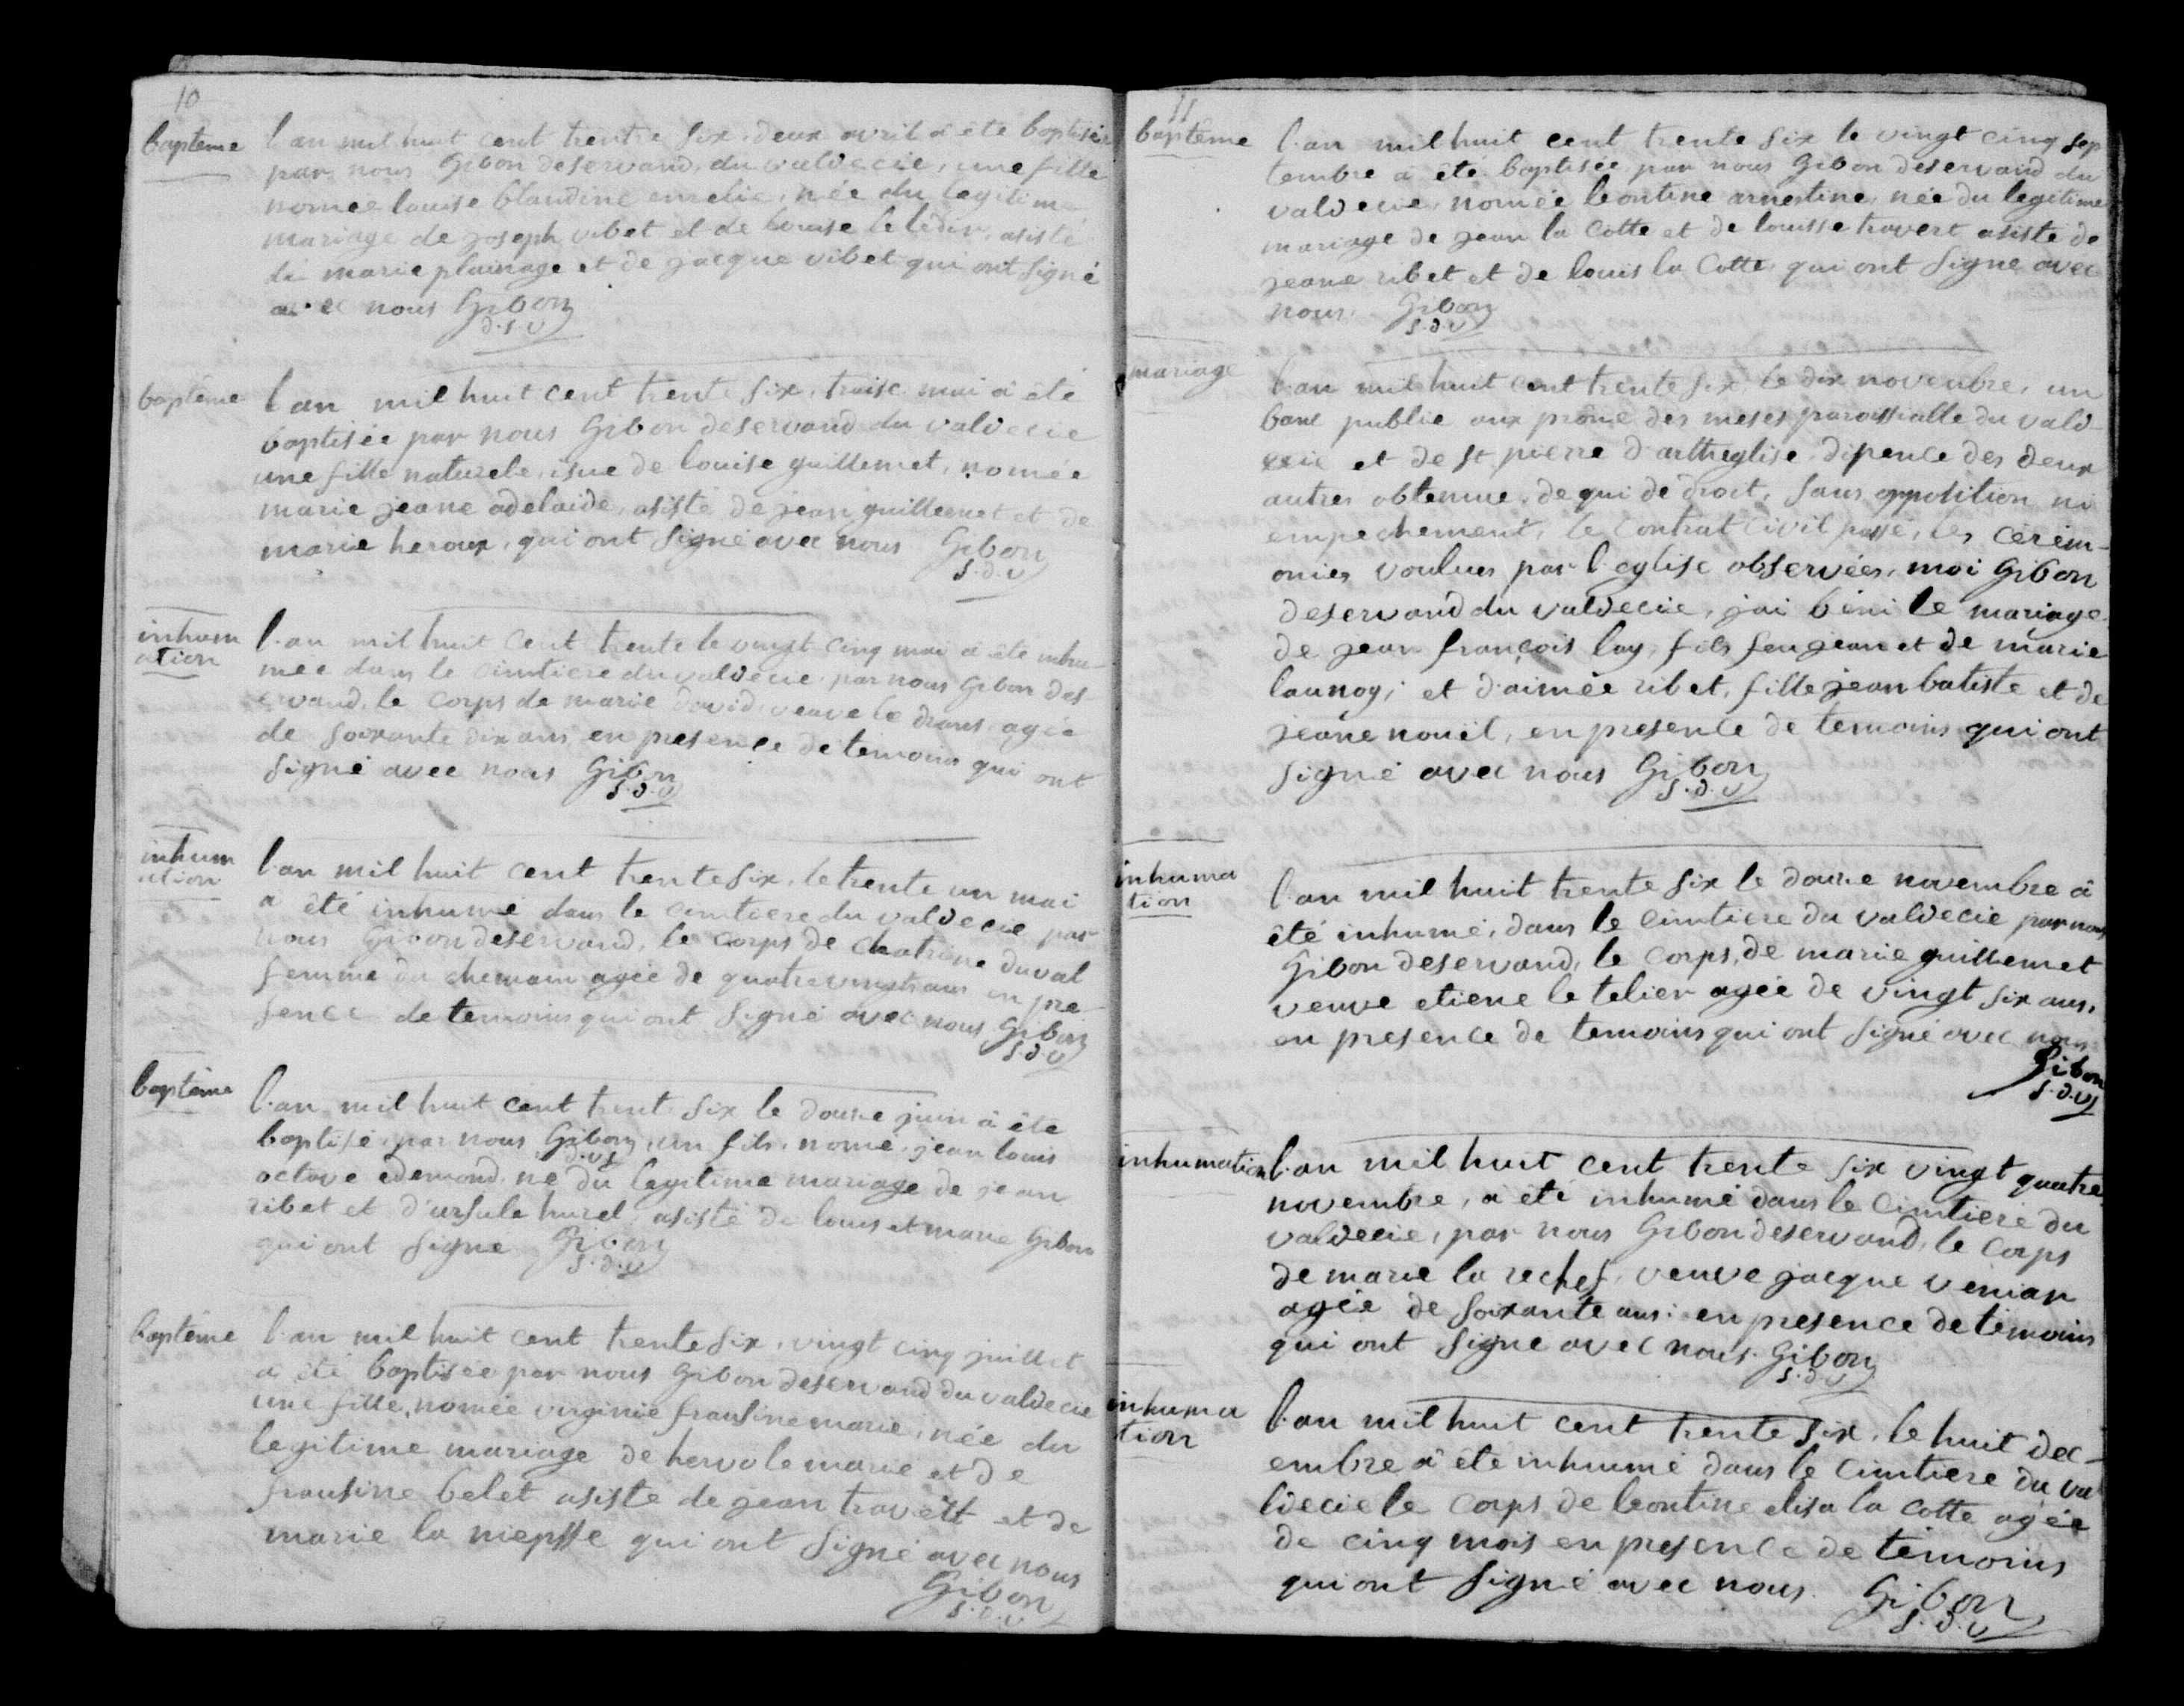 10
bapteme
l'an mil huit cent trente six, deux avril a été baptisée
par nous Gibon deservand, du valdecie, une fille
nomée louise blandine emelie, née du legitime
mariage de joseph vibet et de louise le ledier, asiste
de marie plainage et de jacque vibet qui ont signé
avec nous Gibon
d.s.v
baptême
l'an mil huit cent trente six, traise mai a été
baptisée par nous Gibon deservand du valdecie
une fille naturele, isue de louise guillemet, nomée
marie jeane adelaide, asisté de jean guillemet et de
marie heroux, qui ont signé avec nous Gibon
s.d.v
inhum
ation
l'an mil huit cent trente le vingt cinq mai a été inhu-
mée dans le cimtiere du valdecie par nous Gibon des
ervand, le corps de marie david veuve le drans agée
de soixante dix ans en presence de temoins qui ont
signé avec nous Gibon
s.d.v
inhum
ation
l'an mil huit cent trente six, le trente un mai
a été inhumé dans le cimtiere du valdecie par
nous Gibon deservand, le corps de chatrine duval
femme du chemain agée de quatre vingt ans en pre-
sence de temoins qui ont signé avec nous Gibon
s.d.v
baptême
l'an mil huit cent trent six le douse juin a été
baptisé par nous Gibon, un fils, nomé jean louis
d.v.s
octave edemond né du legitime mariage de jean
ribet et d'ursule hurel, asisté de louis et marie Gibon
qui ont signé Gibon
s.d.v
baptême
l'an mil huit cent trente six, vingt cinq juillet
a été baptisée par nous Gibon deservand du valdecie
une fille, nomée virginie fransine marie, née du
legitime mariage de herve le marie et de
fransine belet asisté de jean travert et de
marie la niepsse qui ont signé avec nous
Gibon
s.d.v
11
baptême
l'an mil huit cent trente six le vingt cinq sep
tembre a été baptisée par nous Gibon deservand du
valdecie, nomée leontine arnestine, née du legitime
mariage de jean la cotte et de louisse travert asiste de
jeane ribet et de louis la cotte qui ont signe avec
nous. Gibon
s.d.v
mariage
l'an mil huit cent trente six, le dix novembre, un
banc publie aux prône des meses paroissialle du vald-
ecie et de st pierre d'artheglise, dipence des deux
autres obtenue, de qui de droit, sans oppolition ni
empechement, le contrat civil passé, les cérém-
onies voulues par l'eglise observées, moi Gibon
deservand du valdecie, jai béni le mariage
de jean françois lay, fils feu jean et de marie
launoy; et d'aimée ribet, fille jean batiste et de
jeane nouël, en presence de temoins qui ont
signé avec nous Gibon
s.d.v
inhuma
tion
l'an mil huit trente six le douse novembre a
été inhumé, dans le cimtiere du valdecie par nous
Gibon deservand, le corps, de marie guillemet
veuve etiene le telier agée de vingt six ans,
en presence de temoins qui ont signé avec nous
Gibon
s.d.v
inhumation
l'an mil huit cent trente six vingt quatre
novembre, a été inhumé dans le cimtiere du
valdecie, par nous Gibon deservand, le corps
de marie la rechef, veuve jacque venian
agée de soixante ans: en presence de temoins
qui ont signe avec nous. Gibon
s.d.v
inhuma
tion
l'an mil huit cent trente six, le huit dec-
embre a été inhumé dans le cimtiere du va
ldecie le corps de leontine elisa la cotte agée
de cinq mois en presence de temoins
qui ont signé avec nous. Gibon
s.d.v